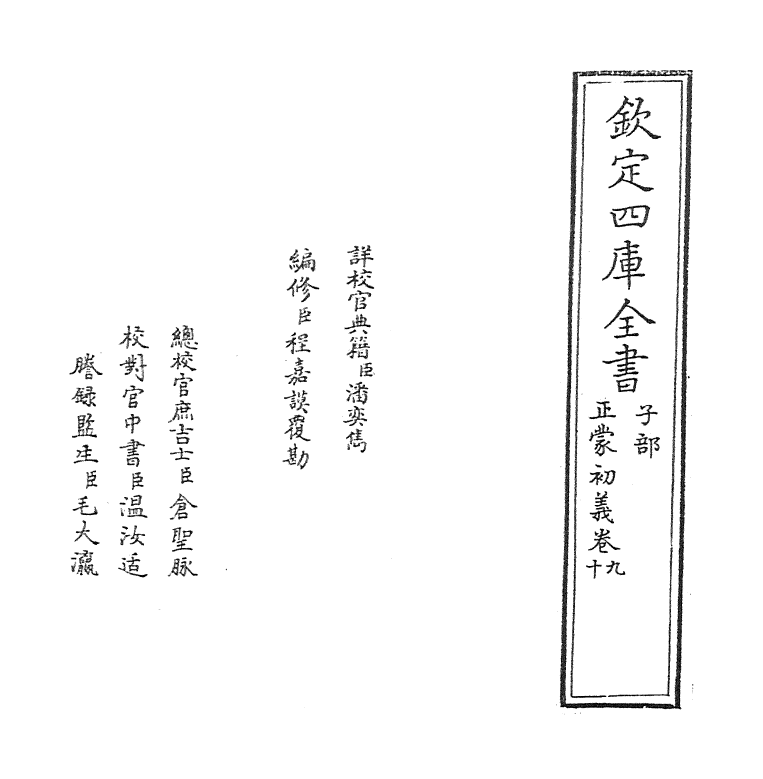 欽定四庫全書
子部
正蒙初義卷九
十
詳校官典籍臣潘奕雋
編修臣程嘉謨覆勘
總校官庶吉士臣倉聖脉
校對官中書臣温汝适
謄録監生臣毛大瀛